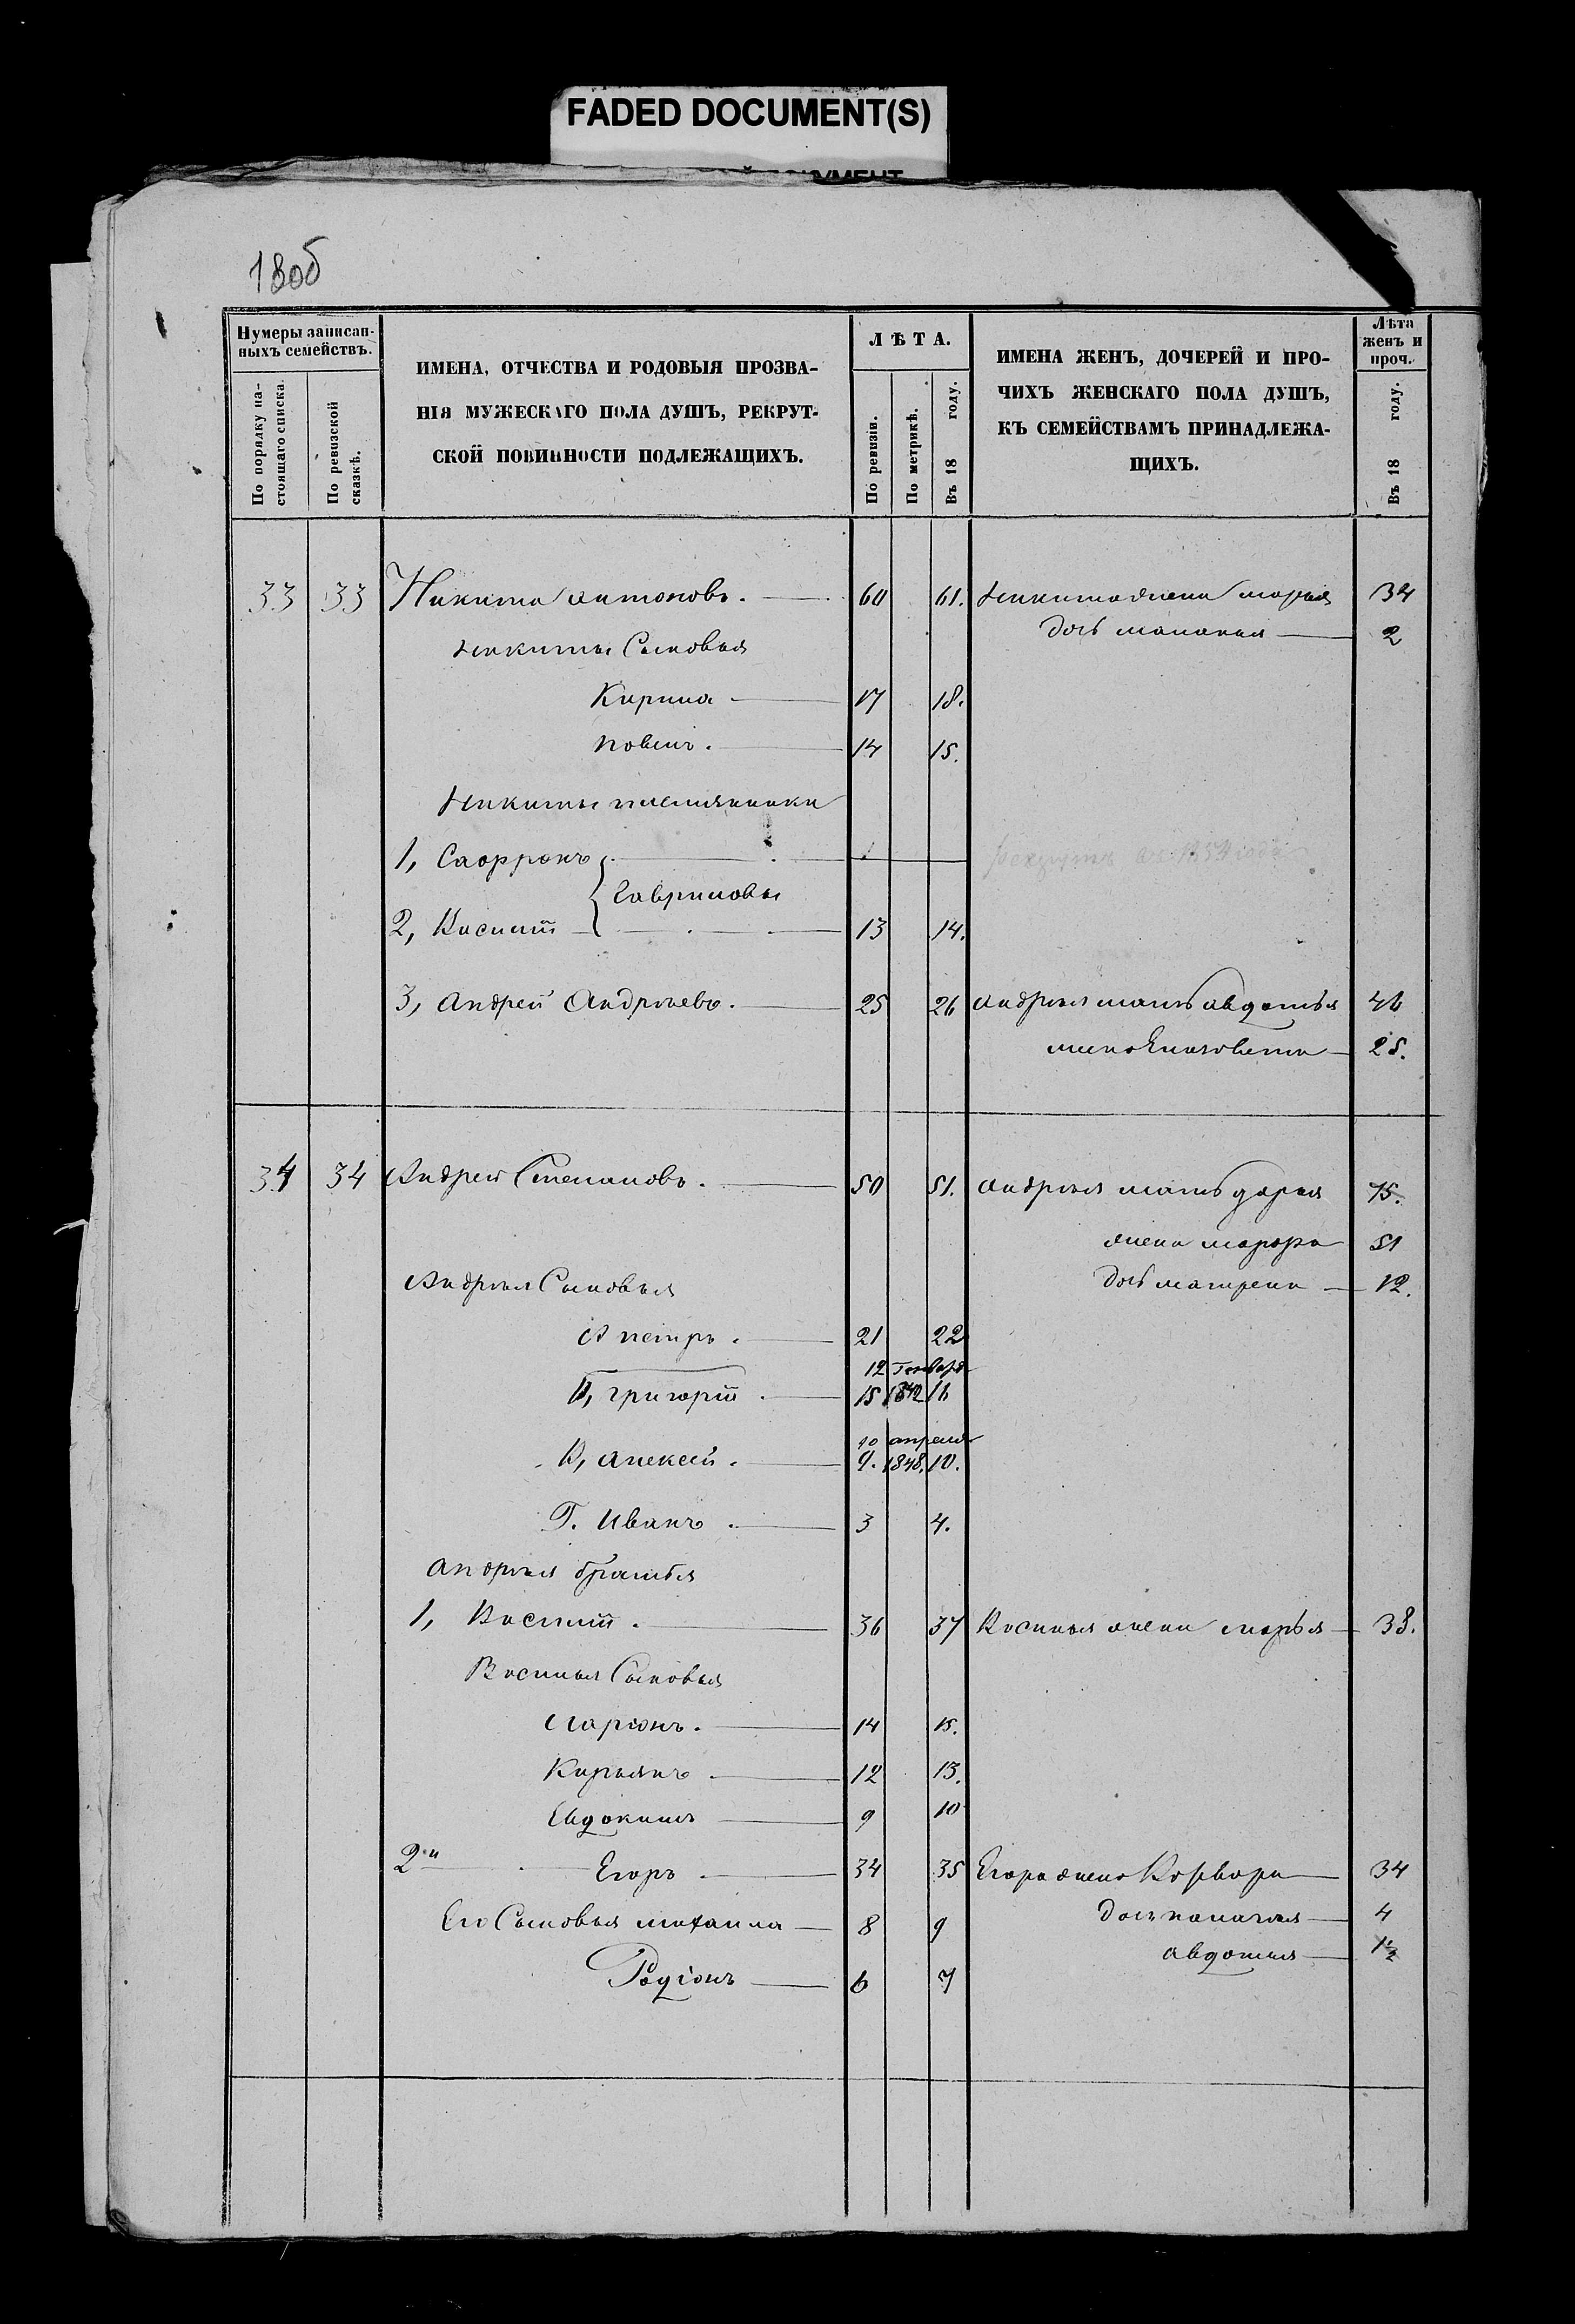 FADED DOCUMENT(S)
180б
Нумеры записан-
ныхъ семействъ.
По порядку на-
стоящаго списка.
По ревизской
сказкѣ.
ИМЕНА, ОТЧЕСТВА И РОДОВЫЯ ПРОЗВА-
НІЯ МУЖЕСКАГО ПОЛА ДУШЪ, РЕКРУТ-
СКОЙ ПОВИННОСТИ ПОДЛЕЖАЩИХЪ.
ЛѢТА.
По ревизіи.
По метрикѣ.
Въ 18 году.
ИМЕНА ЖЕНЪ, ДОЧЕРЕЙ И ПРО-
ЧИХЪ ЖЕНСКАГО ПОЛА ДУШЪ,
КЪ СЕМЕЙСТВАМЪ ПРИНАДЛЕЖА-
ЩИХЪ.
Лѣта
женъ и
проч.
Въ 18 году.
33 33 Никита антоновъ. 60 61. никита жена марья 34
дочь маланья 2
никиты Сыновья
Кирила 17 18.
павелъ. 14 15.
никиты племянники
1, Саффронъ рекрутъ 1854 года
Гавриловы
2, Василій 13 14.
3, андрей андреевъ. 25 26 андрея мать авдотья 46
жена Елизовета 25.
34 34 Андрей Степановъ. 50 51. андрея мать дарья 75.
жена марфа 51
Андрея Сыновья дочь матрена 12.
А петръ. 21 22
12 Генваря
Б, григорій. 15 1842 16
10 апреля
В, алексей. 9. 1848. 10.
Г. иванъ. 3 4.
андрея братья
1, Василій. 36 37 Василья жена марья 38.
Василья Сыновья
Ларіонъ. 14 15.
Кирьянъ. 12 13.
Евдокимъ 9 10
2й Егоръ. 34 35 Егора жена Варвара 34
Его Сыновья михаила 8 9 дочь 4
авдотья 1/2
Родіонъ 6 7